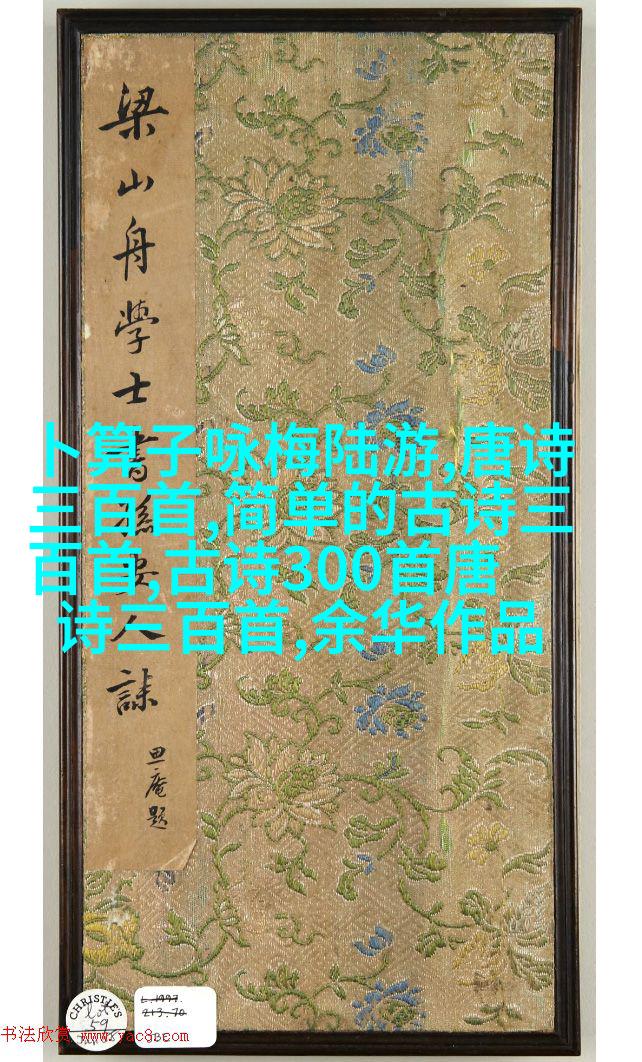 梁山舟學士書孫安人誄
庵題
卜算子咏梅陆游,唐诗
三百首,简单的古诗三
百首,古诗300首唐
诗三百首,余华作品
CHRISTIE'S
lot
59
L.1997.
213-70
书法欣赏 www.yac8.com